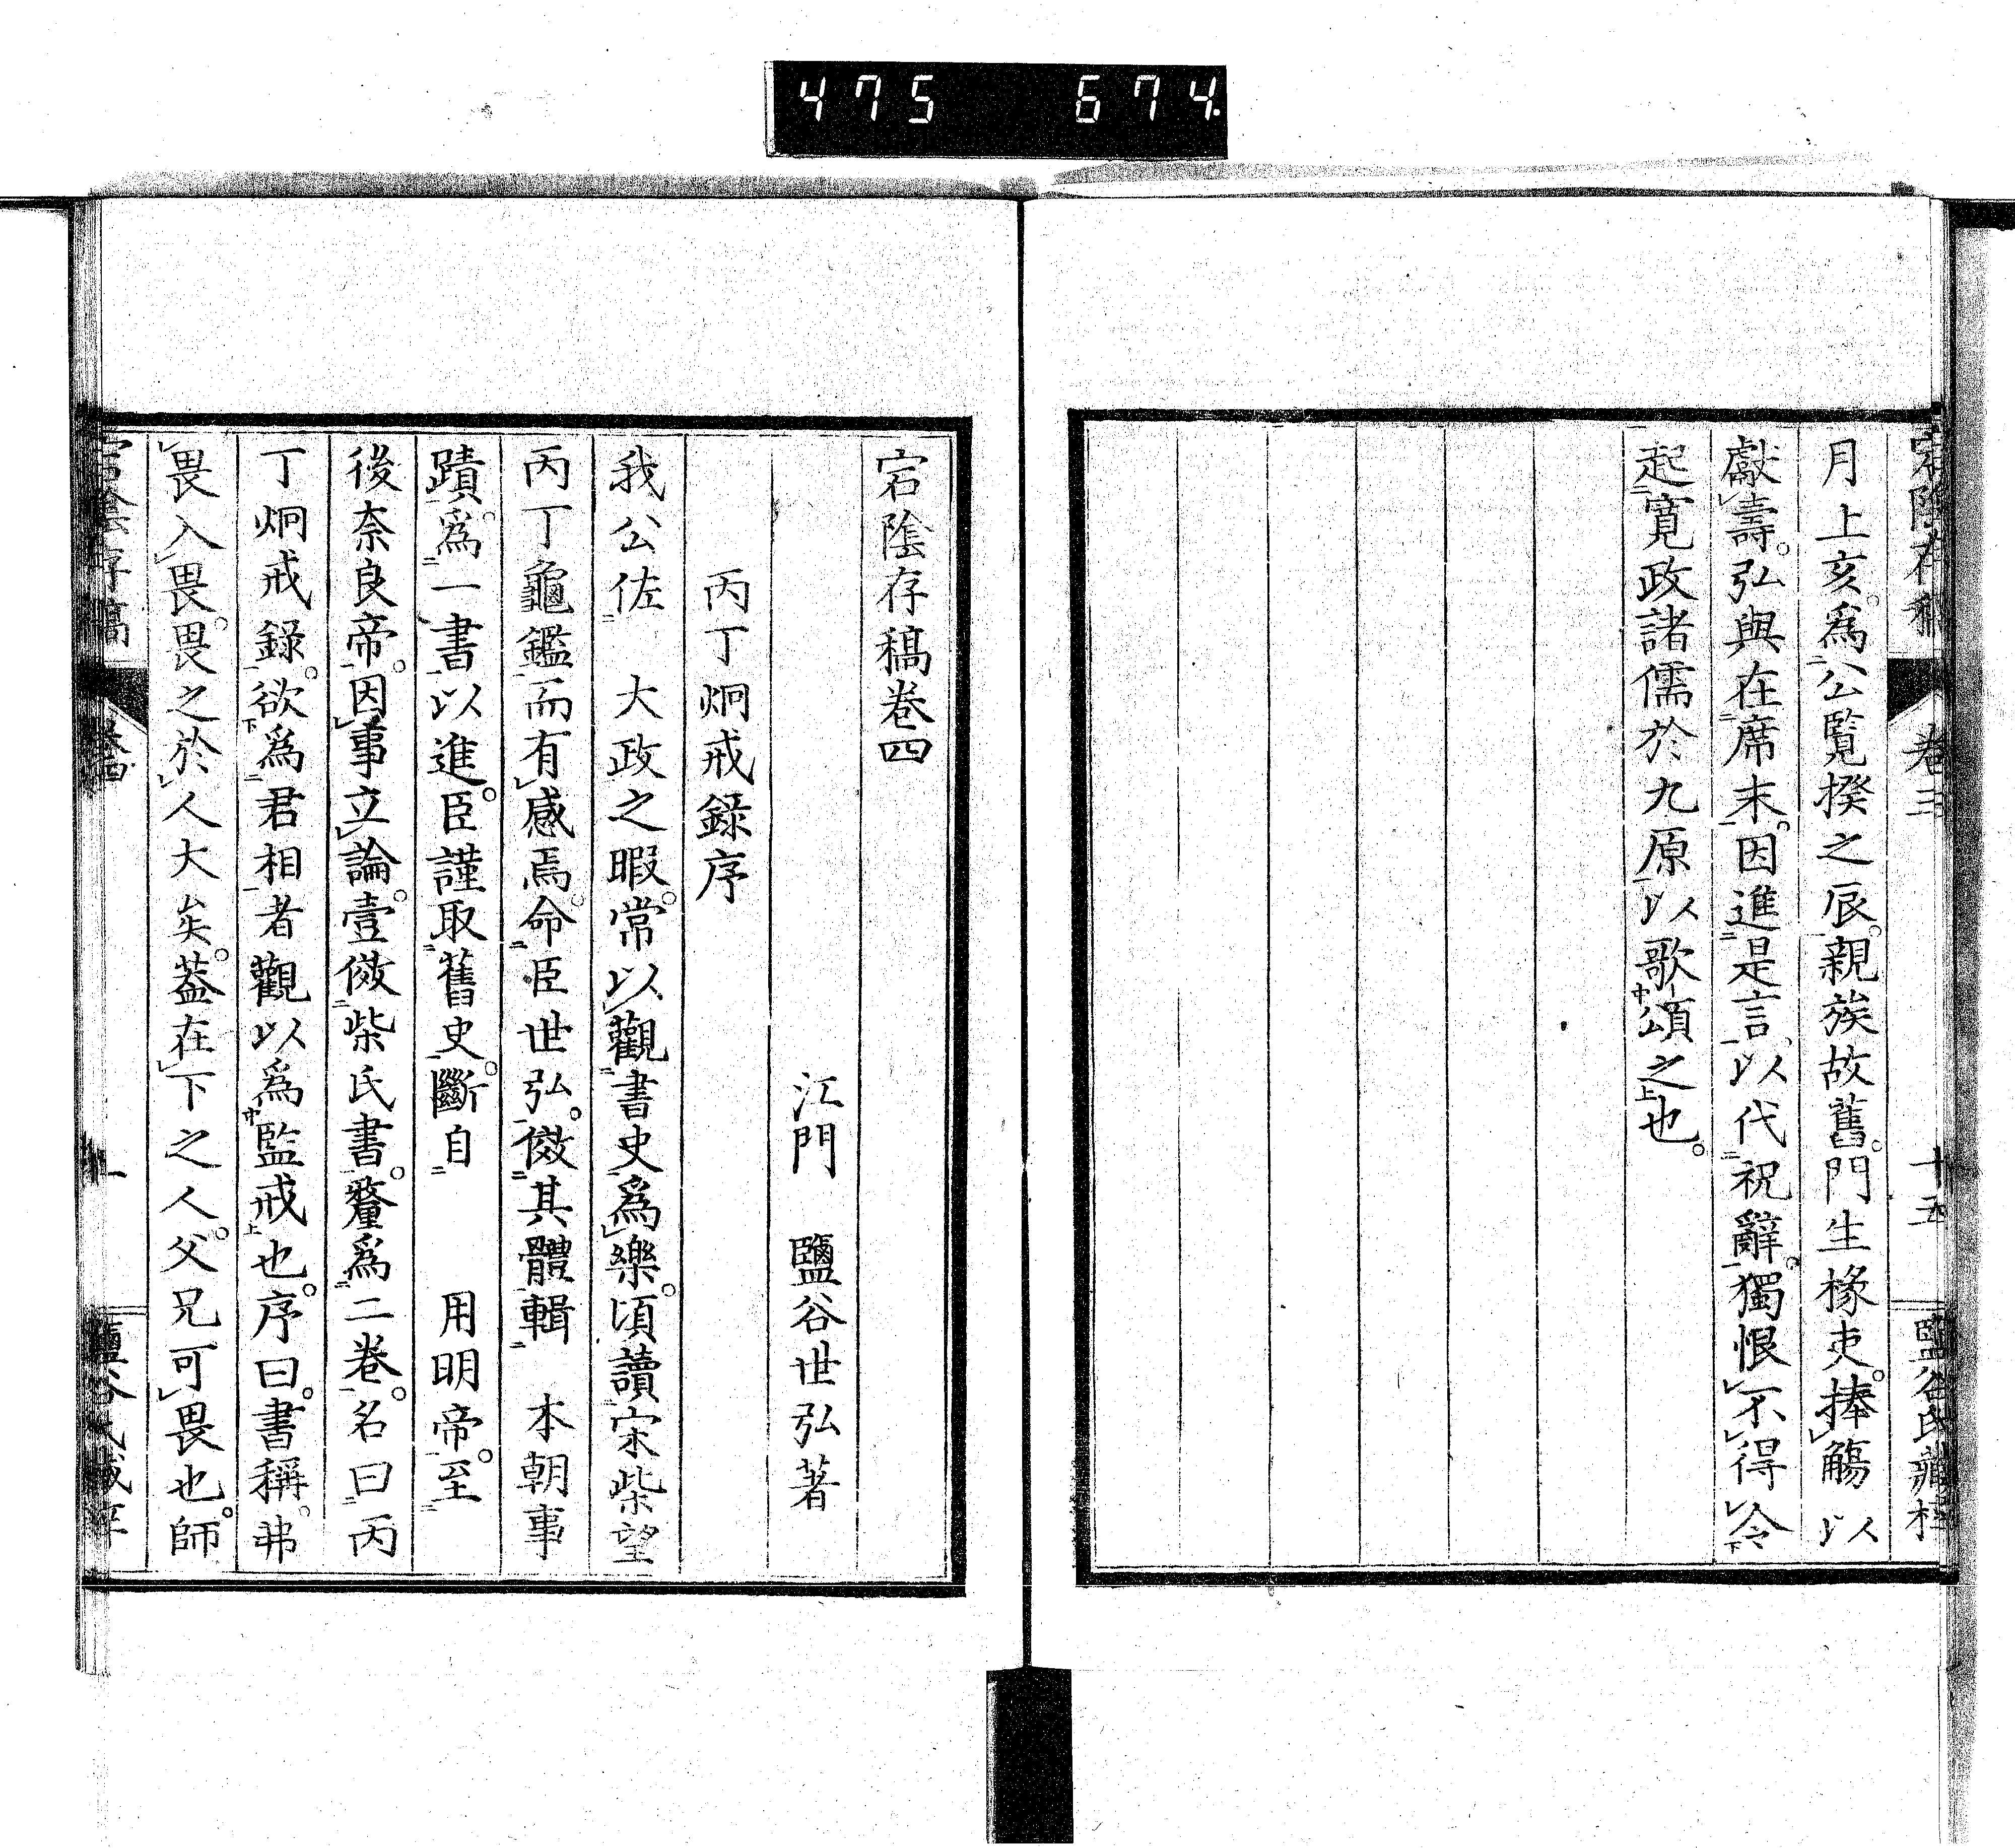 475 674
宕陰存稿 卷三 十五 鹽谷氏藏梓
月上亥。爲公覧揆之辰。親族故舊。門生椽吏。捧觴以
獻壽。弘與在席末。因進是言、以代祝辭。獨恨不得令
起寬政諸儒於九原以歌頌之也。
宕陰存稿卷四
江門 鹽谷世弘著
丙丁炯戒錄序
我公佐 大政之暇。常以觀書史爲樂。頃讀宋柴望
丙丁龜鑑而有感焉。命臣世弘。傚其體輯 本朝事
蹟。爲一書以進。臣謹取舊史。斷自 用明帝。至
後奈良帝。因事立論。壹傚柴氏書。釐爲二卷。名曰丙
丁炯戒錄。欲爲君相者觀以爲監戒也。序曰。書稱。弗
畏入畏。畏之於人大矣。葢在下之人。父兄可畏也。師
宕陰存稿 卷四 一 鹽谷氏藏梓